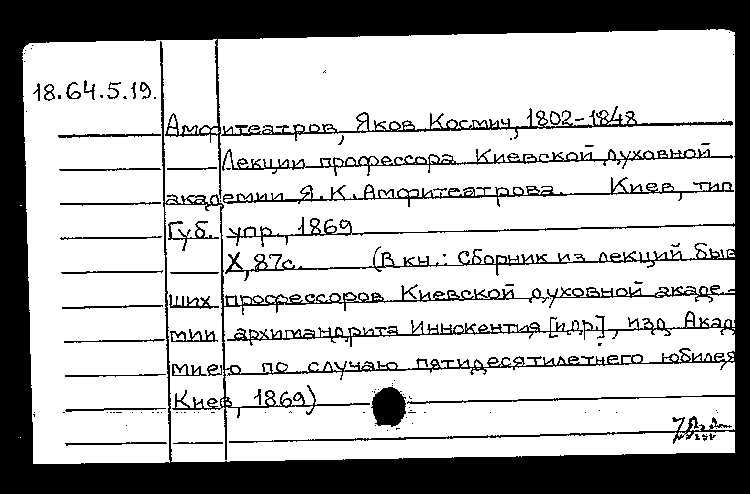 18.64.5.19.
Амфитеатров, Яков Космич, 1802-1848
Лекции профессора Киевской духовной
академии Я.К. Амфитеатрова. Киев, тип
Губ. упр., 1869
X, 87с. (В кн.: Сборник из лекций быв
ших профессоров Киевской духовной акаде-
мии архимандрита Иннокентия [и др.], изд. Акад
миею по случаю пятидесятилетнего юбилея
Киев, 1869)